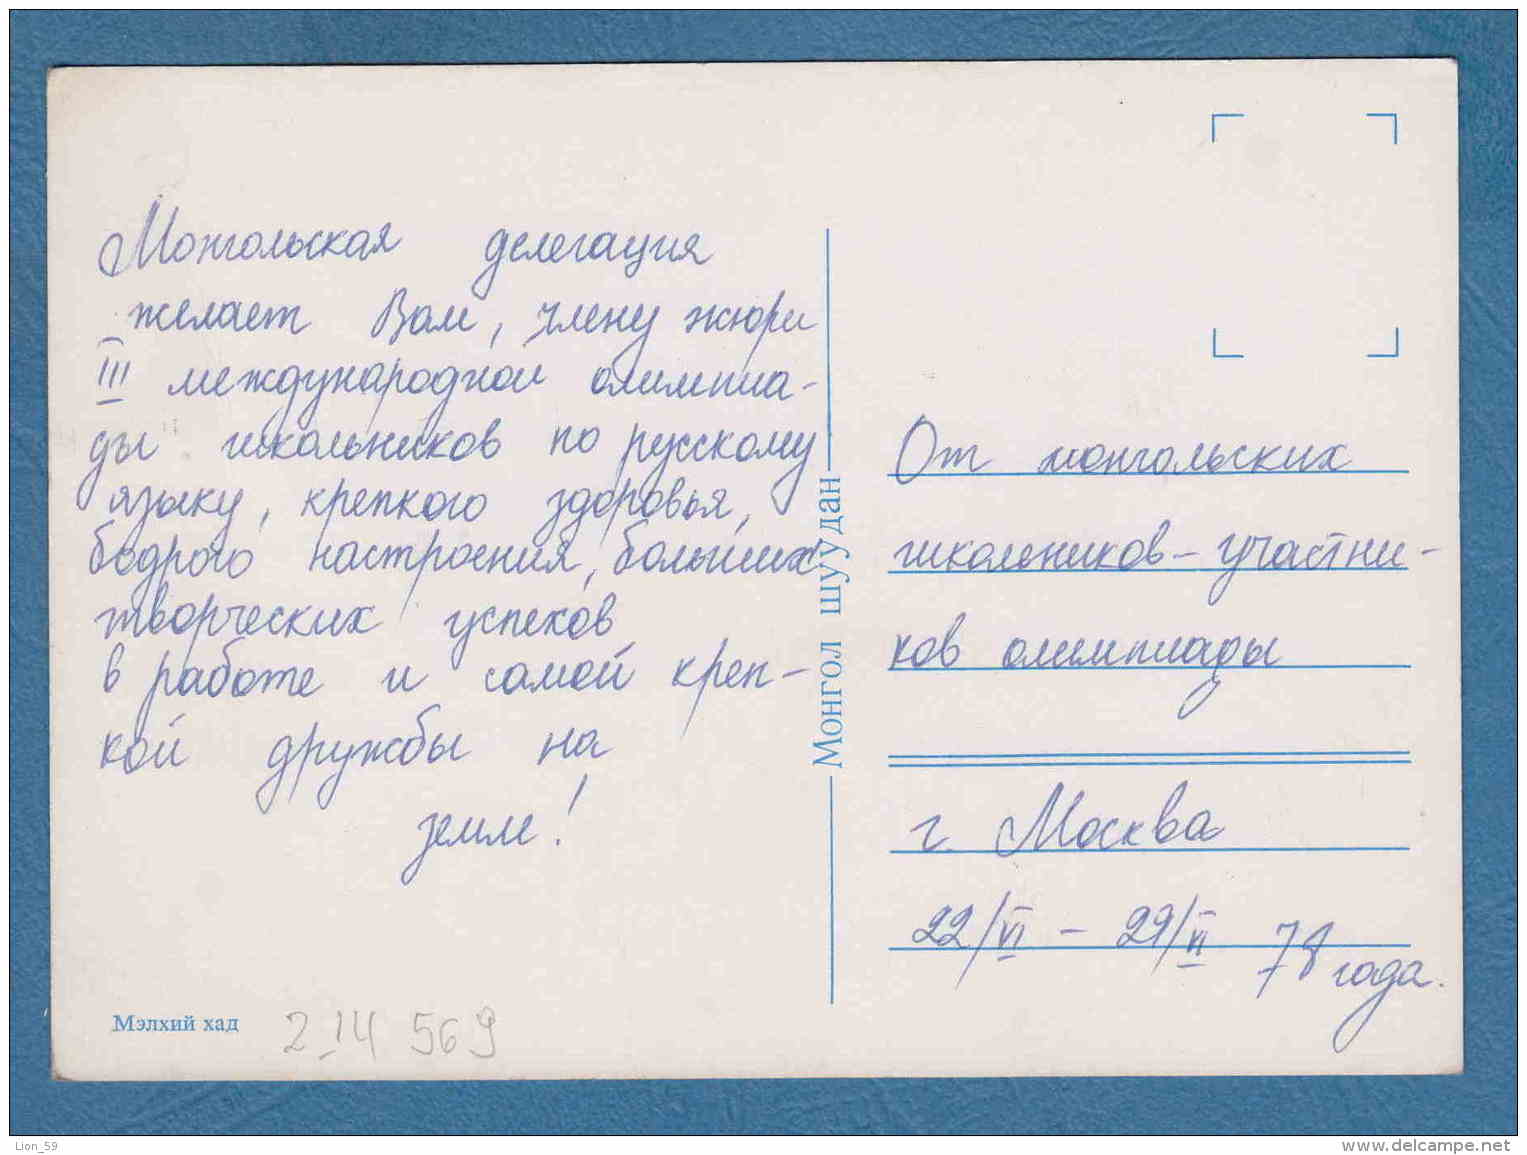 Монгольская делегация
желает Вам, члену жюри
III международной олимпиа-
ды школьников по русскому
языку, крепкого здоровья,
бодрого настроения, больших
творческих успехов
в работе и самой креп-
кой дружбы на
земле!
Мэлхий хад
2 14 569
Монгол шуудан
От монгольских
школьников - участни-
ков олимпиады
г. Москва
22/VI - 29/VI 78 года.
Lion_59
www.delcampe.net